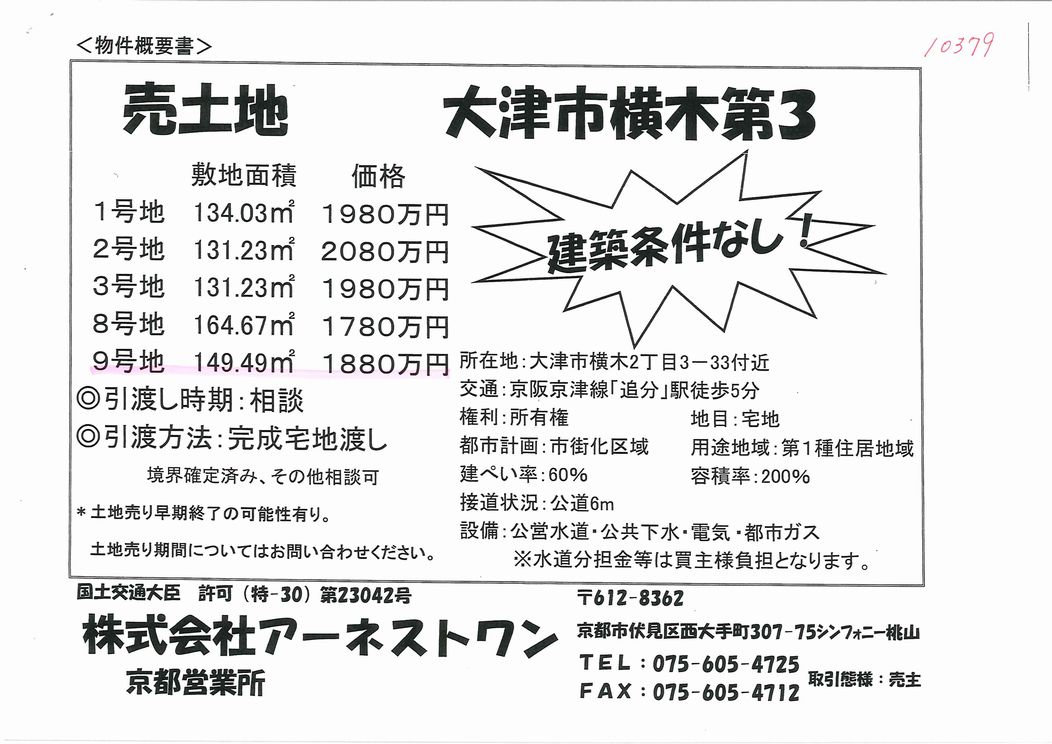 ＜物件概要書＞
10379
売土地 大津市横木第3
敷地面積 価格
1号地 134.03㎡ 1980万円
2号地 131.23㎡ 2080万円
3号地 131.23㎡ 1980万円
8号地 164.67㎡ 1780万円
9号地 149.49㎡ 1880万円
◎引渡し時期：相談
◎引渡方法：完成宅地渡し
境界確定済み、その他相談可
＊土地売り早期終了の可能性有り。
土地売り期間についてはお問い合わせください。
建築条件なし！
所在地：大津市横木2丁目3－33付近
交通：京阪京津線「追分」駅徒歩5分
権利：所有権 地目：宅地
都市計画：市街化区域 用途地域：第1種住居地域
建ぺい率：60% 容積率：200%
接道状況：公道6m
設備：公営水道・公共下水・電気・都市ガス
※水道分担金等は買主様負担となります。
国土交通大臣 許可（特-30）第23042号
株式会社アーネストワン
京都営業所
〒612-8362
京都市伏見区西大手町307-75シンフォニー桃山
TEL：075-605-4725
FAX：075-605-4712
取引態様：売主